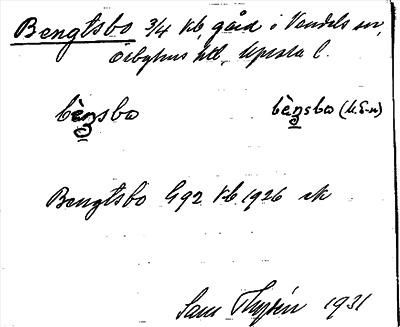 Bengtsbo 3/4 kb, gård i Vendels sn,
Örbyhus hd, Uppsala l.
bèŋsbo bèŋsbo (M.E-n)
Bengtsbo G92 Kb 1926 ek
Sam Thysén 1931